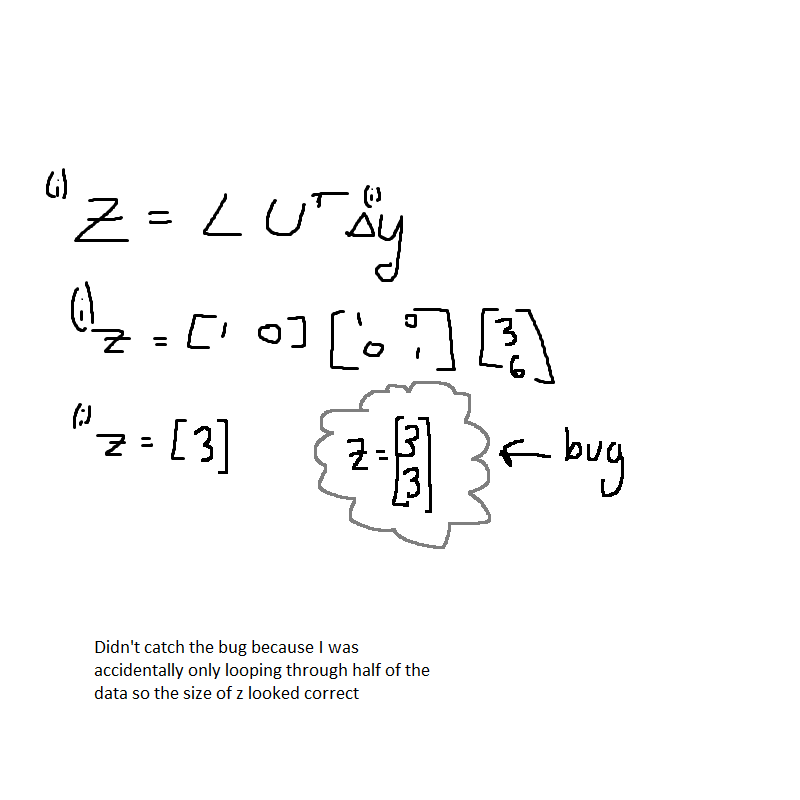 (i) Z = L Uᵀ Δy (i)
(i) z = [1 0] [1 0 0 1] [3 6]
(i) z = [3] z = [3 3] ← bug
Didn't catch the bug because I was
accidentally only looping through half of the
data so the size of z looked correct